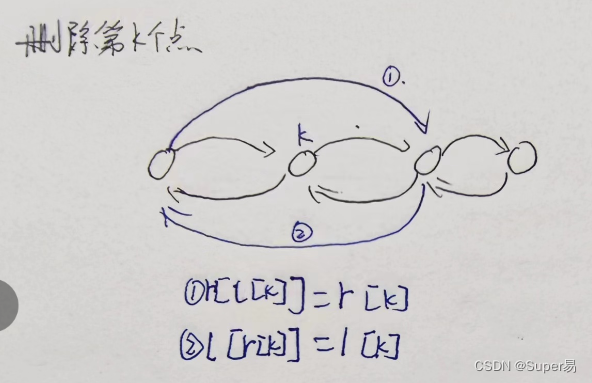 删除第k个点
①.
k
②
①r[l[k]]=r[k]
②l[r[k]]=l[k]
CSDN @Super易